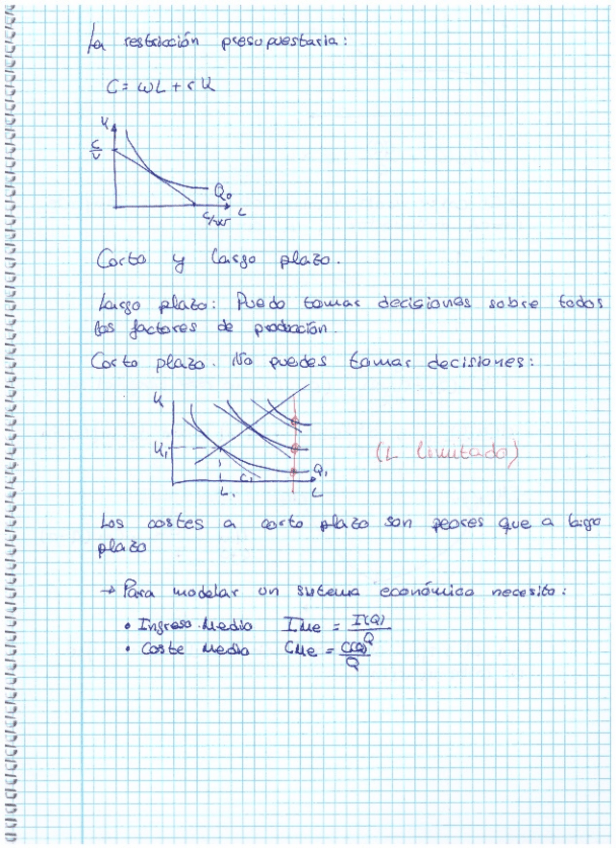 La restricción presupuestaria:
C = wL + rK
K
C/r
Q₀
C/w
L
Corto y largo plazo.
Largo plazo: Puedo tomar decisiones sobre todos
los factores de producción.
Corto plazo. No puedes tomar decisiones:
K
K₁
L₁
C₁
Q₁
L
(L limitado)
Los costes a corto plazo son peores que a largo
plazo
→ Para modelar un sistema económico necesito:
• Ingreso Medio IMe = I(Q)/Q
• Coste Medio CMe = C(Q)/Q